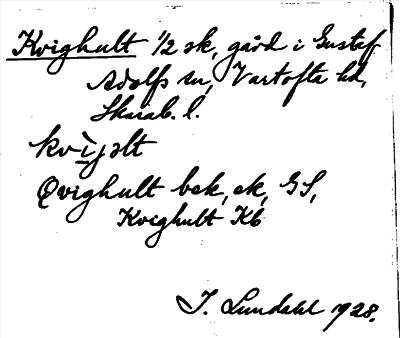 Kvighult 1/2 sk, gård i Gustaf
Adolfs sn, Vartofta hd,
Skarab. l.
kvìjəlt
Qvighult bek, ek, GS,
Kvighult Kb
I. Lundahl 1928.